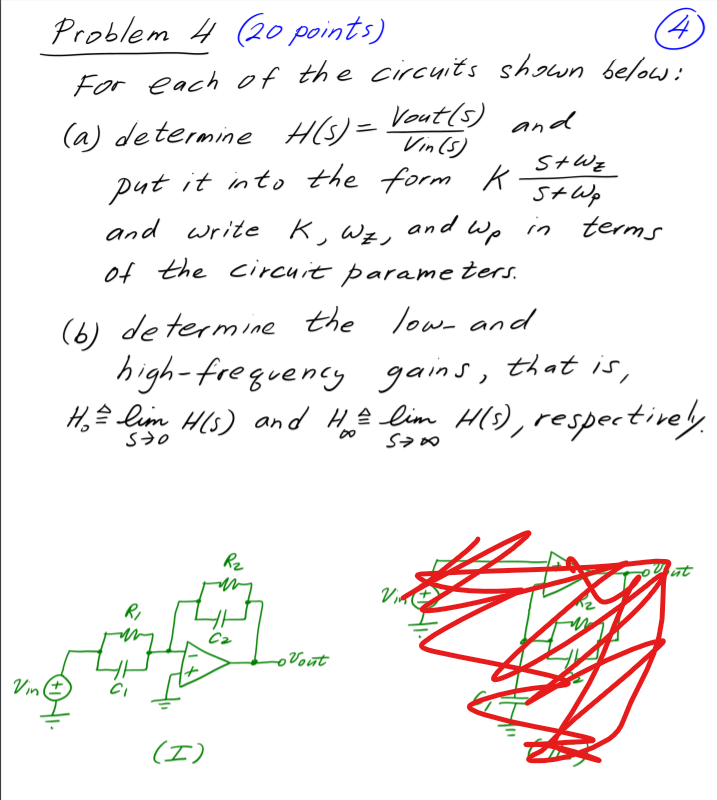 Problem 4 (20 points)
4
For each of the circuits shown below:
(a) determine H(s) = Vout(s)/Vin(s) and
put it into the form K (s+ωz)/(s+ωp)
and write K, ωz, and ωp in terms
of the circuit parameters.
(b) determine the low- and
high-frequency gains, that is,
H₀ ≜ lim s→0 H(s) and H∞ ≜ lim s→∞ H(s), respectively.
R₂
R₁
C₂
C₁
Vin
+
-
+
Vout
(I)
Vin
+
R₂